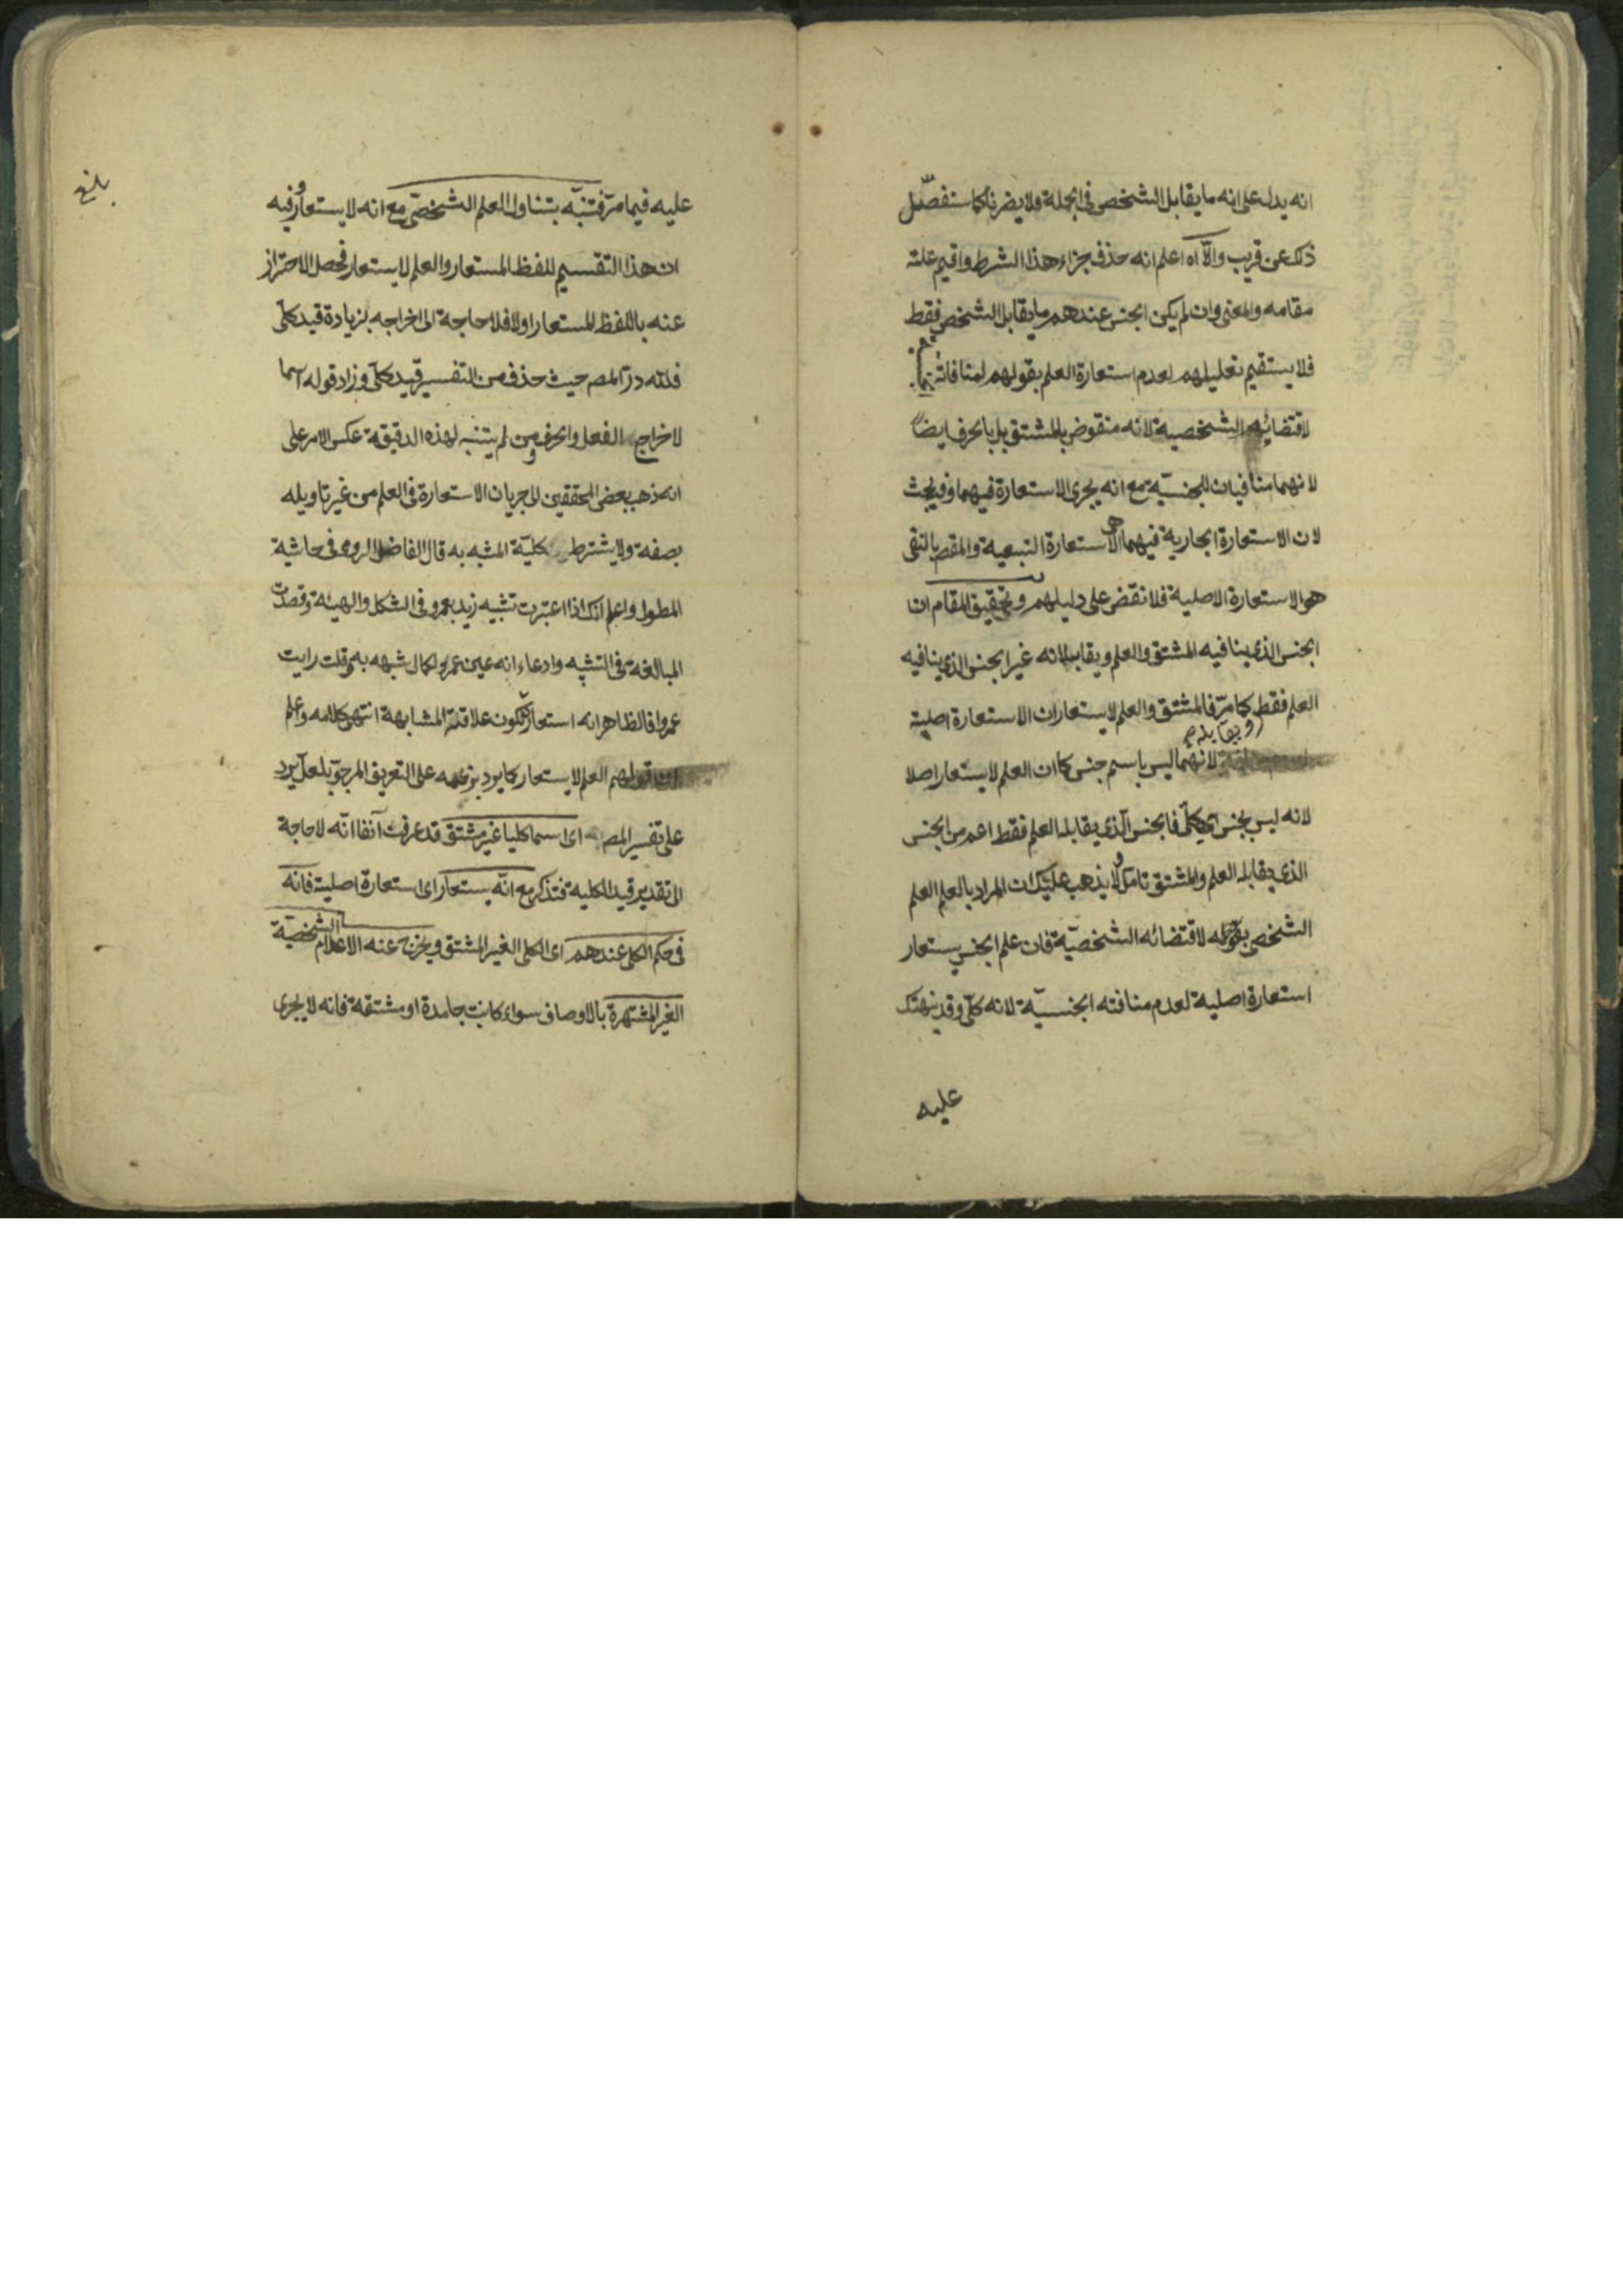 انه يدل على انه ما يقابل الشخص فى الجملة ولا يضرنا كما سنفصّل
ذلك عن قريب والّا آه اعلم انه حذف جزاء هذا الشرط واقيم علته
مقامه والمعنى وان لم يكن الجنس عندهم ما يقابل الشخص فقط
فلا يستقيم تعليلهم لعدم استعارة العلم بقولهم لمنافاته
لاقتضائه الشخصية لانه منقوض بالمشتق بل بالحرف ايضا
لانهما منافيان للجنسيّة مع انه يجرى الاستعارة فيهما وفيه بحث
لان الاستعارة الجارية فيهما هى الاستعارة التبعية والمقص بالنفى
هو الاستعارة الاصلية فلا نقض على دليلهم وتحقيق المقام ان
الجنس الذى ينافيه المشتق والعلم ويقابلانه غير الجنس الذى ينافيه
العلم فقط كما مرّ فالمشتق والعلم لا يستعاران الاستعارة اصلية
ويقابله
لانهما ليس باسم جنس كما ان العلم لا يستعار اصلا
لانه ليس بجنس اى كلّى فالجنس الّذى يقابله العلم فقط اعم من الجنس
الذى يقابله العلم والمشتق تامل ولا يذهب عليك ان المراد بالعلم العلم
الشخصى بقوله لاقتضائه الشخصيّة فان علم الجنس يستعار
استعارة اصلية لعدم منافته الجنسيّة لانه كلّى وقد نبهتك
عليه
بلغ
عليه فيما مرّ فتنبّه يتناول العلم الشخصّى مع انه لا يستعار وفيه
ان هذا التقسيم للفظ المستعار والعلم لا يستعار فحصل الاحتراز
عنه باللفظ المستعار اولا فلا حاجة الى اخراجه بزيادة قيد كلّى
فللّه درّ المص حيث حذف من التفسير قيد كلّى وزاد قوله اسما
لاخراج الفعل والحرف ومن لم يتنبه لهذه الدقيقة عكس الامر على
انه ذهب بعض المحققين الى جريان الاستعارة فى العلم من غير تاويله
بصفة ولا يشترط كليّة المشبه به قال الفاضل الرومى فى حاشية
المطول واعلم انك اذا اعتبرت تشبيه زيد بعمرو فى الشكل والهيئة وقصدت
المبالغة فى التشبيه وادعاء انه عين عمرو لكمال شبهه به وقلت رايت
عمروا فالظاهر انه استعارة لكون علاقته المشابهة انتهى كلامه واعلم
ان قولهم العلم لا يستعار كما يرد بزعمه على التعريف المرجوّ بلعل يرد
على تفسير المص اى اسما كليا غير مشتق قد عرفت آنفا انّه لا حاجة
الى تقدير قيد الكلية فتذكر مع انّه يستعار اى استعارة اصلية فانه
فى حكم الكلى عندهم اى الكلى الغير المشتق ويخرج عنه الاعلام الشخصيّة
الغير المشتهرة بالاوصاف سواء كانت جامدة او مشتقة فانه لا يجرى